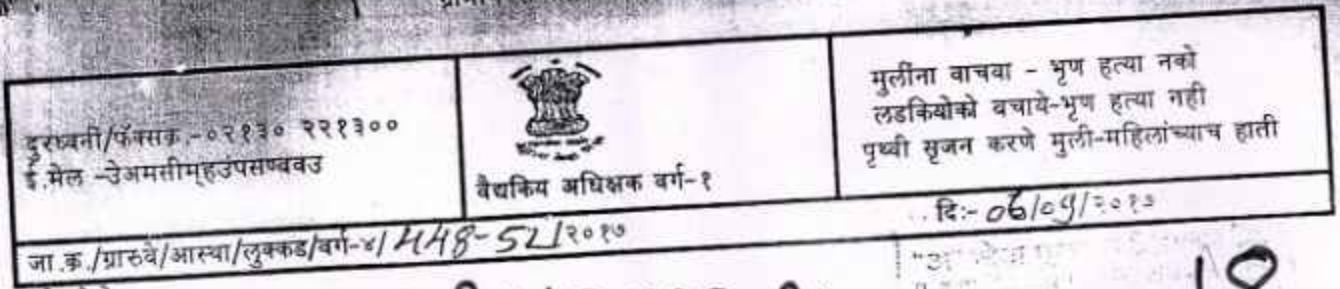 दुरध्वनी/फॅक्सक्र.-०२१३० २२१३००
ई.मेल -उेअमसीम्हउंपसण्बवउ
वैद्यकिय अधिक्षक वर्ग-१
मुलींना वाचवा - भृण हत्या नको
लडकियोको बचाये-भृण हत्या नही
पृथ्वी सृजन करणे मुली-महिलांच्याच हाती
जा.क्र./ग्रारुवे/आस्था/लुक्कड/वर्ग-४/ 448-52/२०१७
दि:- 06/09/२०१७
10